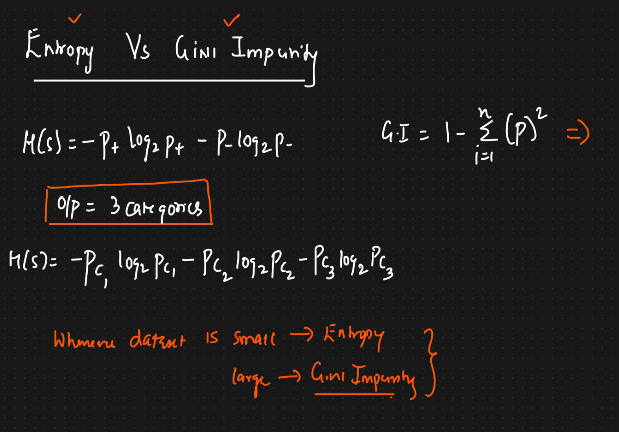 Entropy Vs Gini Impurity
H(s) = -P+ log2 P+ - P- log2 P-
G.I = 1 - Σ i=1 n (P)^2 ⇒
O/P = 3 categories
H(s) = -Pc1 log2 Pc1 - Pc2 log2 Pc2 - Pc3 log2 Pc3
Whenever dataset is small → Entropy
large → Gini Impurity